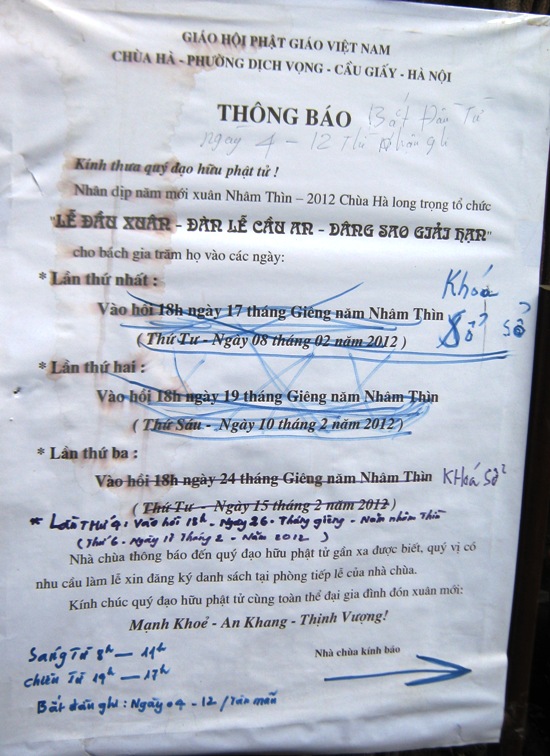 GIÁO HỘI PHẬT GIÁO VIỆT NAM
CHÙA HÀ - PHƯỜNG DỊCH VỌNG - CẦU GIẤY - HÀ NỘI
THÔNG BÁO Bắt Đầu Từ
ngày 4 - 12
Kính thưa quý đạo hữu phật tử !
Nhân dịp năm mới xuân Nhâm Thìn – 2012 Chùa Hà long trọng tổ chức
"LỄ ĐẦU XUÂN - ĐÀN LỄ CẦU AN - DÂNG SAO GIẢI HẠN"
cho bách gia trăm họ vào các ngày:
* Lần thứ nhất :
Khoá
Vào hồi 18h ngày 17 tháng Giêng năm Nhâm Thìn Sổ Sổ
( Thứ Tư - Ngày 08 tháng 02 năm 2012 )
* Lần thứ hai :
Vào hồi 18h ngày 19 tháng Giêng năm Nhâm Thìn
( Thứ Sáu - Ngày 10 tháng 2 năm 2012 )
* Lần thứ ba :
Vào hồi 18h ngày 24 tháng Giêng năm Nhâm Thìn Khoá Sổ
( Thứ Tư - Ngày 15 tháng 2 năm 2012 )
* Lần Thứ 4 . Vào hồi 18h - Ngày 26 - Tháng giêng - Năm nhâm Thìn
( Thứ 6 . Ngày 17 Tháng 2 - Năm 2012 )
Nhà chùa thông báo đến quý đạo hữu phật tử gần xa được biết, quý vị có
nhu cầu làm lễ xin đăng ký danh sách tại phòng tiếp lễ của nhà chùa.
Kính chúc quý đạo hữu phật tử cùng toàn thể đại gia đình đón xuân mới:
Mạnh Khoẻ - An Khang - Thịnh Vượng!
Nhà chùa kính báo
Sáng Từ 8h – 11h
Chiều Từ 14h – 17h
Bắt đầu ghi : Ngày 04 - 12 /